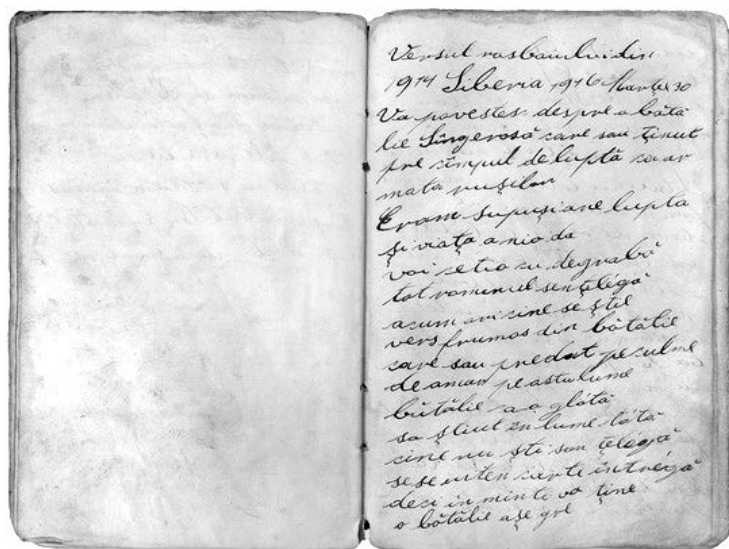 Versul rasbaiului din
1914 Siberia 1916 Martie 30
Va povestesc despre o bătă
lie Sîngerosă care sau ținut
pre cîmpul de luptă cu ar
mata rușilor
Eram supuși ane lupta
și viața anio da
voi cetio cu degrabă
tot rominul sențelégă
acum ori cine se știe
vers frumos din bătălie
care sau predat pe culme
de amar pe asta lume
bătălie ca o glótă
sa știut în lume tótă
cine nu ști son țelegă
se se uiten carte întréigă
deci in minte va ține
o bătălie așe gre